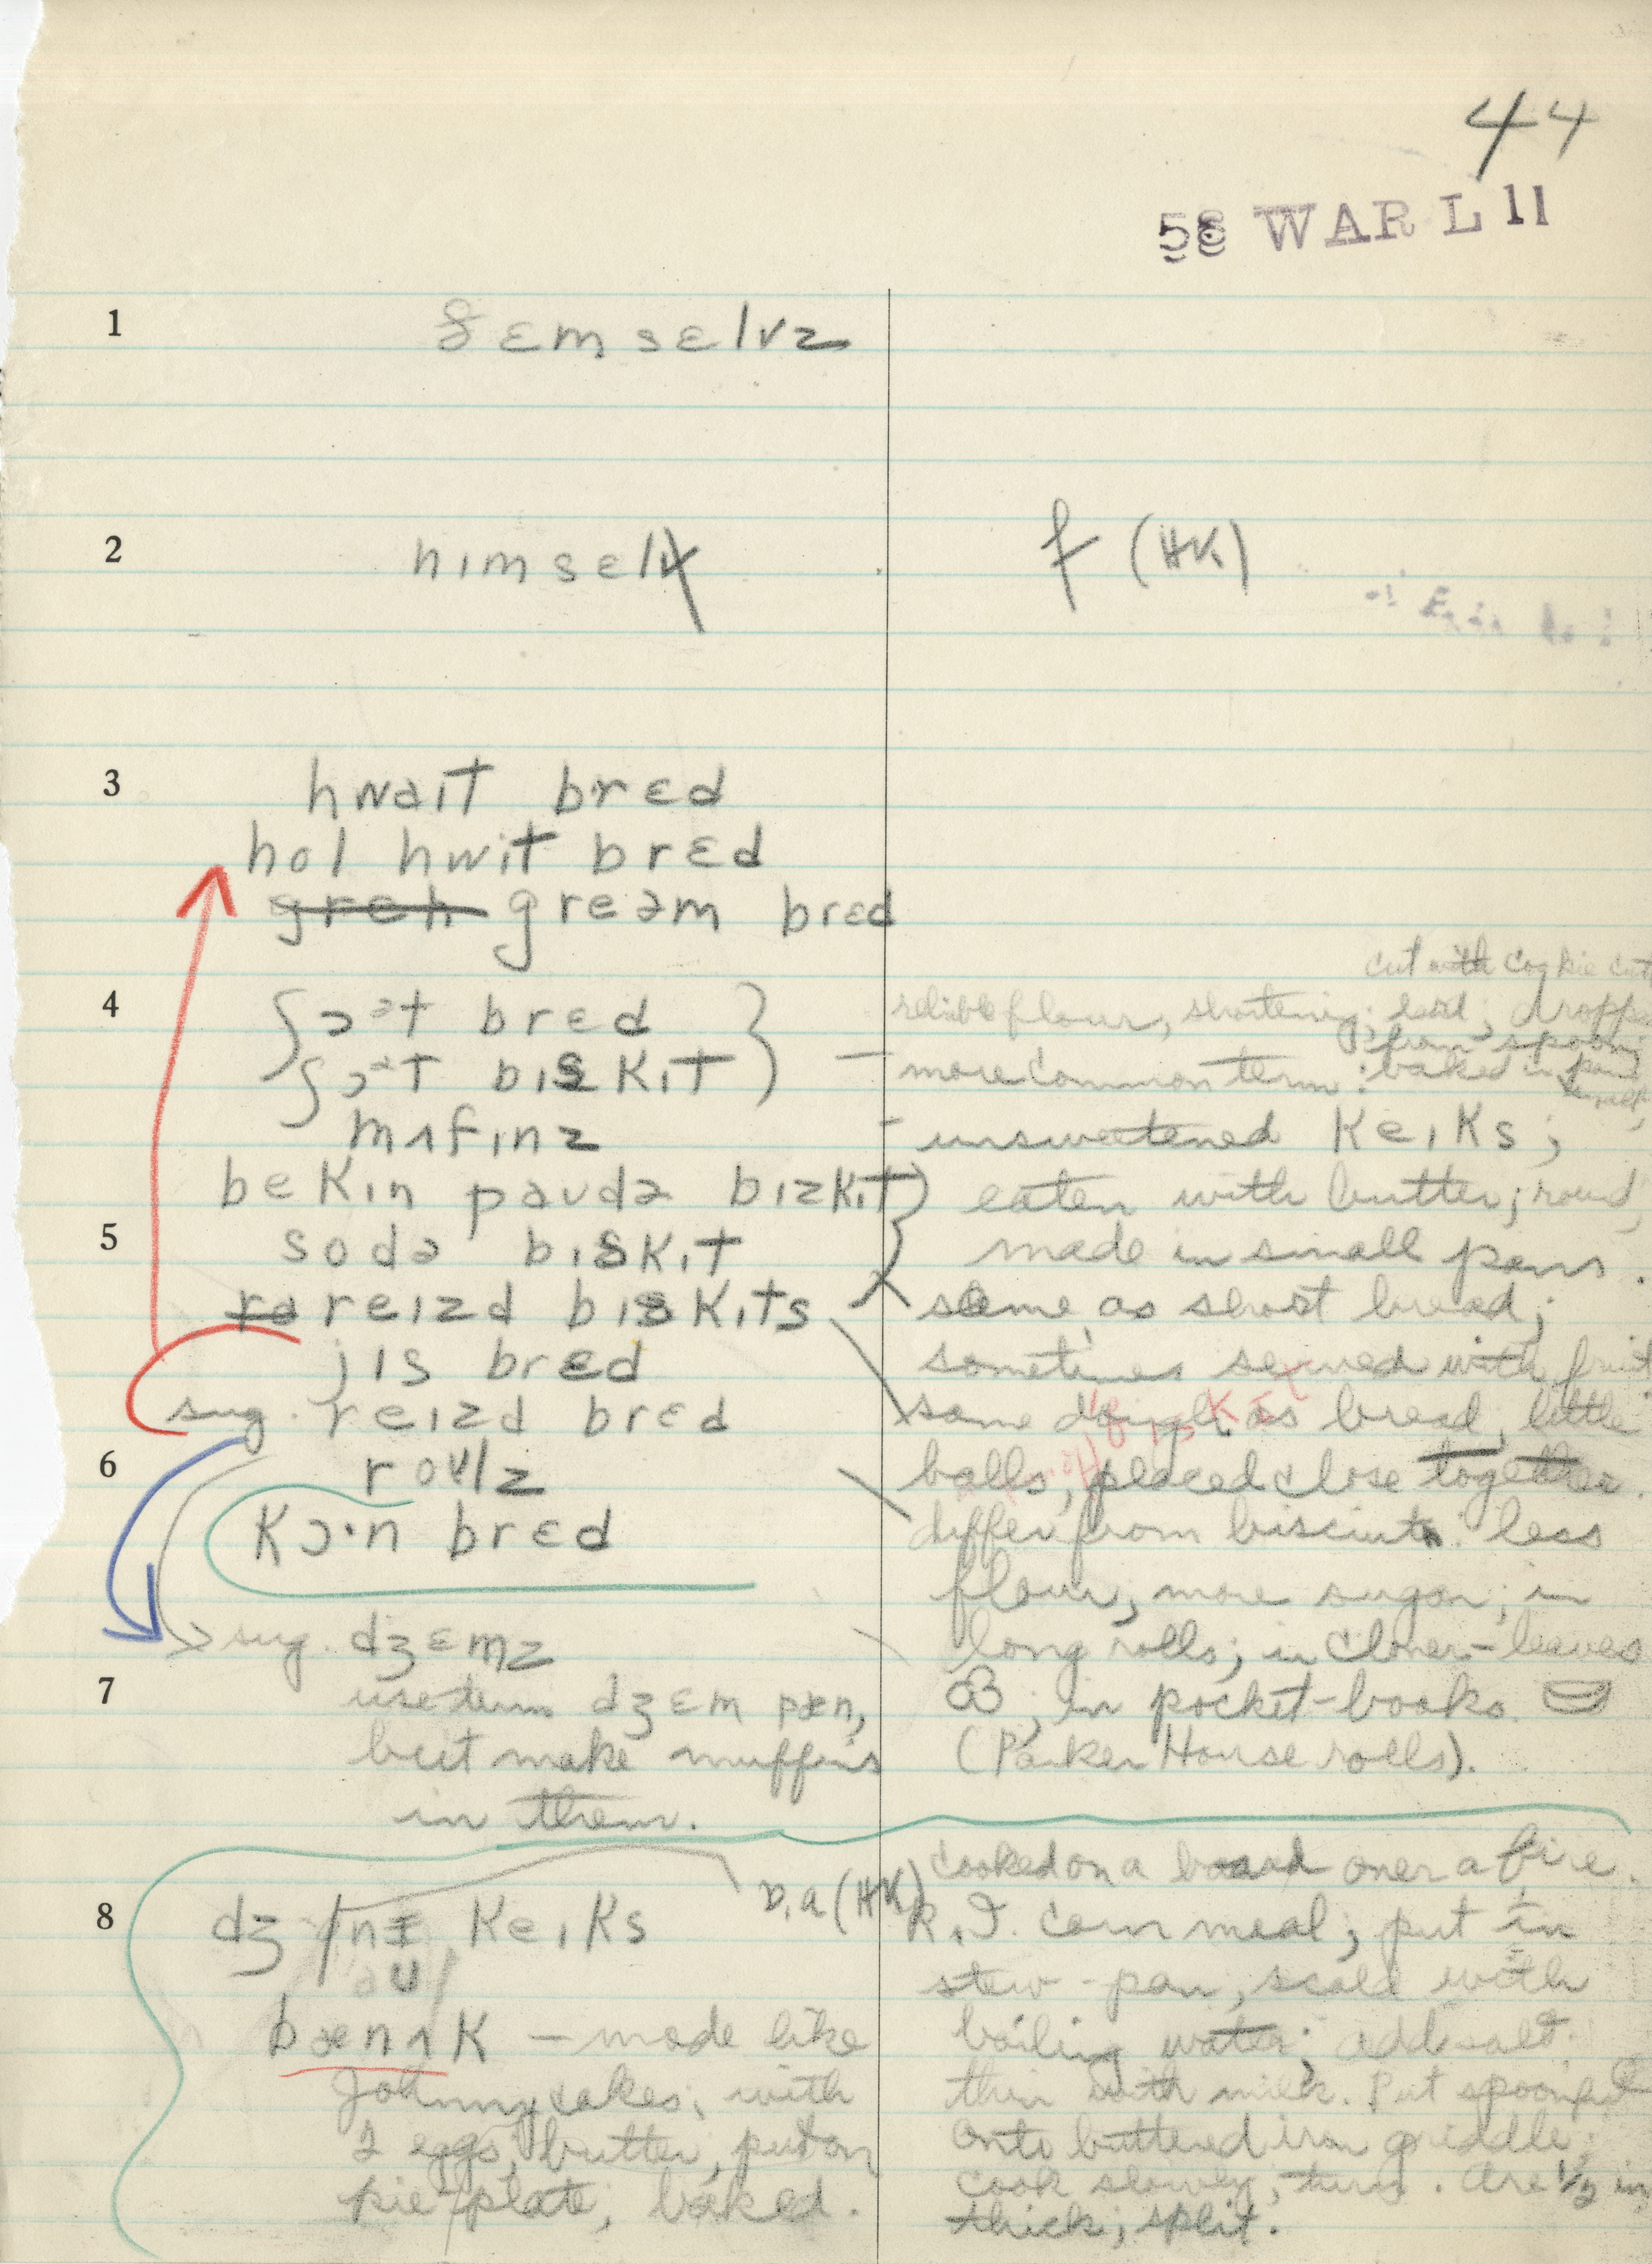 44
58 WAR L 11
1 ðɛmsɛlvz
2 himsɛlf
f (HK)
3 hwaıt brɛd
hol hwit brɛd
greh greəm brɛd
4 ʃɔət brɛd
ʃɔət bıskıt
mʌfınz
bekın paudə bızkıt
5 sodə bıskıt
ra reızd bıskıts
jis brɛd
sug. reızd brɛd
6 roulz
kɔ·n brɛd
sug. dʒɛmz
7 use term dʒɛm pæn,
but make muffins
in them.
8 dʒ nı keıks
bænʌk – made like
Johnny cakes; with
2 eggs, butter, put on
pie-plate, baked.
cut with cookie
flour, shortening; lard;
from spoon;
– more common term: baked in
– unsweetened keıks;
eaten with butter; round,
made in small pans.
same as short bread;
sometimes served with fruit
same dough as bread, little
balls, placed close together.
differ from biscuits: less
flour, more sugar; in
long rolls; in clover-leaves
; in pocket-books.
(Parker House rolls).
cooked on a board over a fire.
(HK) R.I. corn meal; put in
stew-pan, scald with
boiling water; add salt.
thin with milk. Put spoonful
onto buttered iron griddle;
cook slowly, turn. Are 1/2 in.
thick; split.